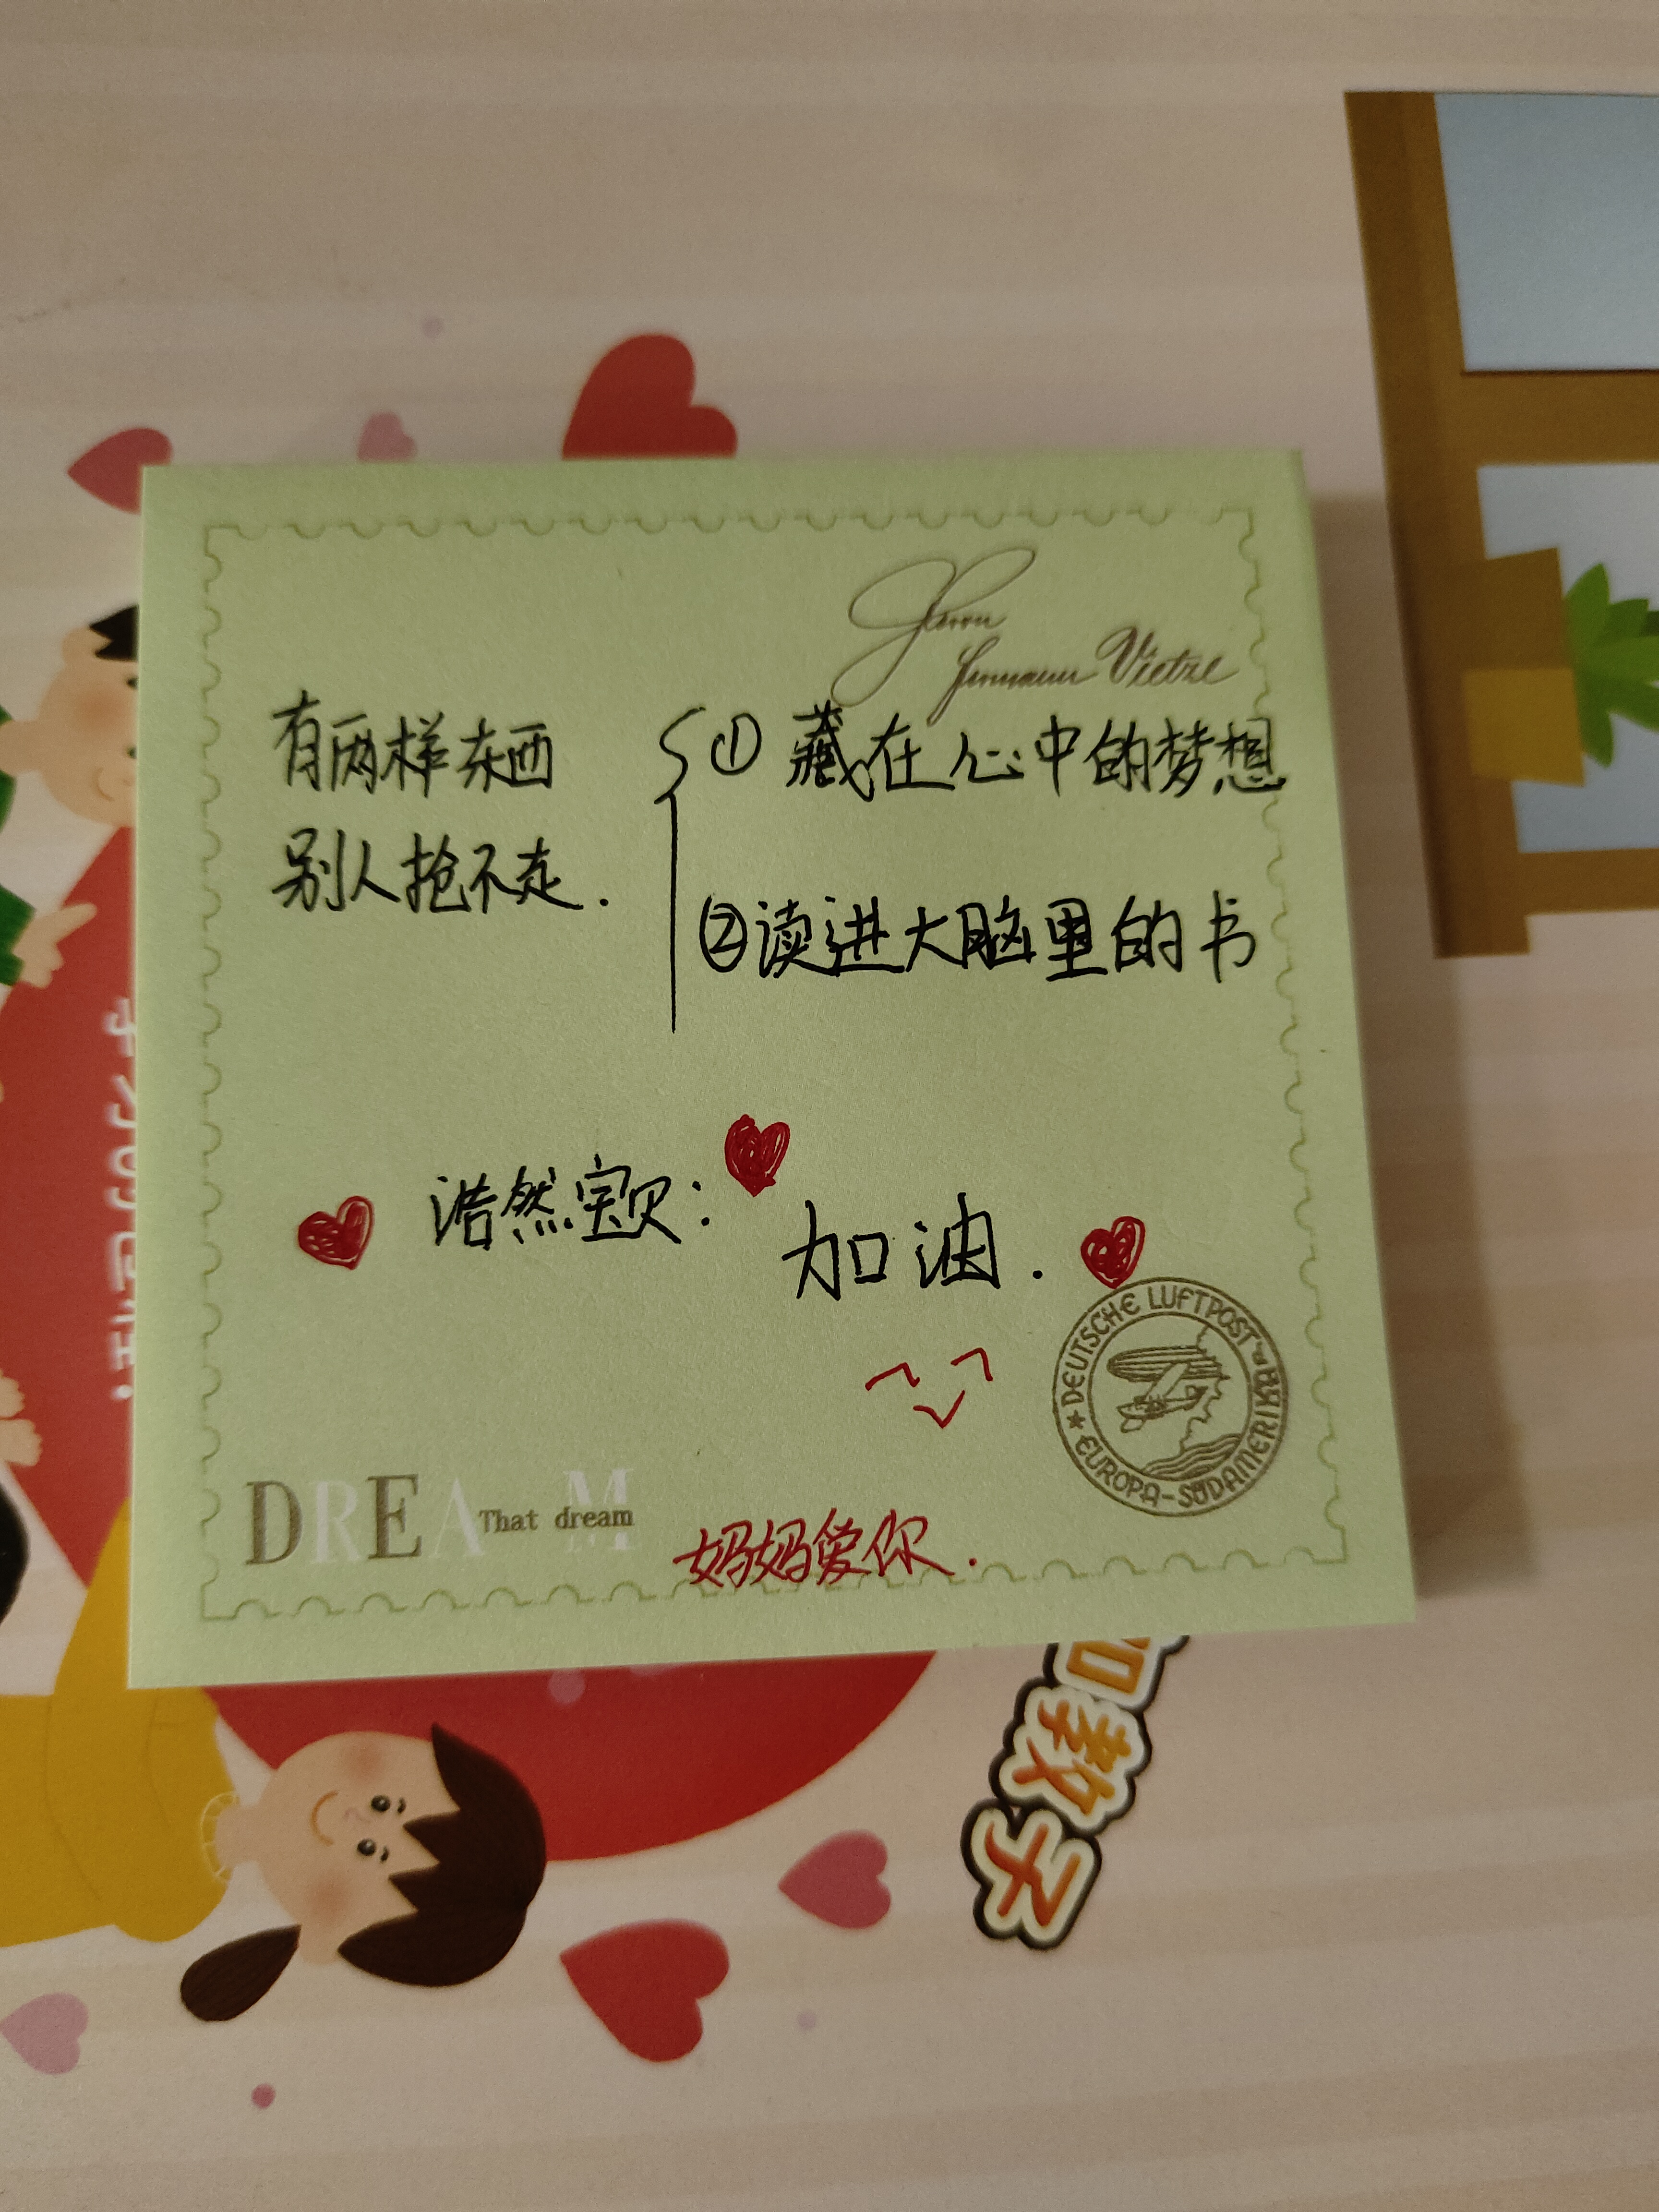 有两样东西
别人抢不走.
①藏在心中的梦想
②读进大脑里的书
浩然宝贝:
加油.
DREAM
That dream
妈妈爱你.
DEUTSCHE LUFTPOST
EUROPA-SÜDAMERIKA
Vietze
教子